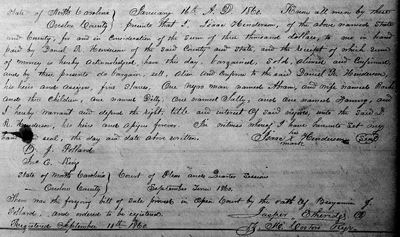 State of North Carolina } January 16th A. D 1860. Know all men by these
Onslow County } presents that I, Isaac Henderson, of the above named State
and County, for and in consideration of the sum of three thousand dollars, to me in hand
paid by Daniel R. Henderson of the said County and State, and the receipt of which sum
of money is hereby acknowledged, have this day, bargained, sold, aliened and confirmed
and by these presents do bargain, sell, alien and confirm to the said Daniel R. Henderson,
his heirs and assigns, five slaves. One negro man named Abram, and wife named
and three children, one named Dilly, one named Sally, and one named Fanny, and
I hereby warrant and defend the right, title and interest of said negroes, unto the said
R. Henderson, his heirs and assigns forever. In witness whereof I have hereunto set my
hand seal, the day and date above written.
Isaac Henderson Seal
mark
J. Pollard
Jno. A. King
State of North Carolina } Court of Pleas and Quarter Session
Onslow County } September Term 1860.
Then was the foregoing bill of Sale proved in Open Court by the oath of Benjamin J.
Pollard, and ordered to be registered. Jasper Etheridge
Registered September 11th 1860.